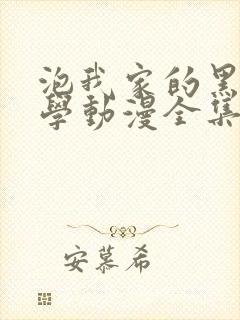 泡我家的黑
學動漫全集
安慕希